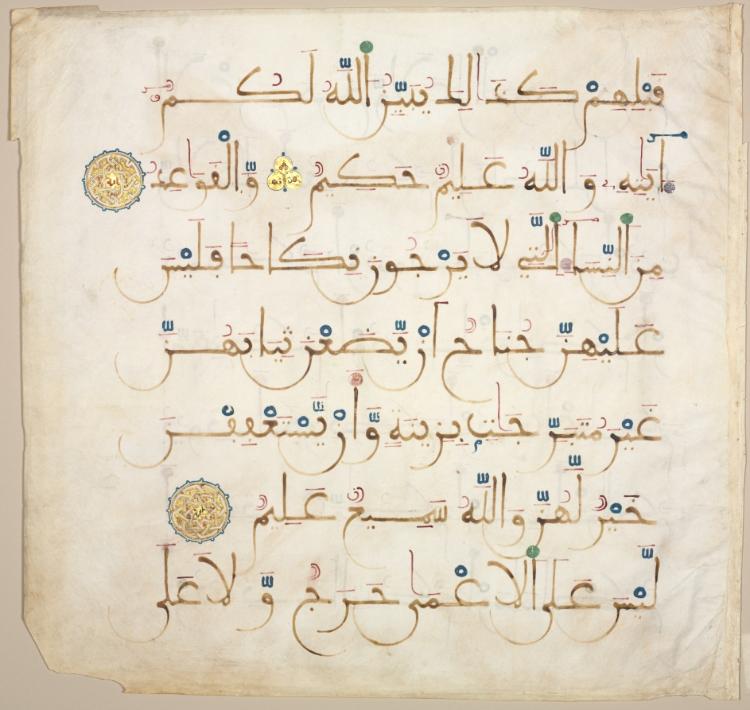 قَبْلِهِمْ كَذَٰلِكَ يُبَيِّنُ ٱللَّهُ لَكُمُ
ءَايَٰتِهِۦ وَٱللَّهُ عَلِيمٌ حَكِيمٌ وَّٱلْقَوَٰعِدُ
مِنَ ٱلنِّسَآءِ ٱلَّٰتِى لَا يَرْجُونَ نِكَاحًا فَلَيْسَ
عَلَيْهِنَّ جُنَاحٌ أَنْ يَّضَعْنَ ثِيَابَهُنَّ
غَيْرَ مُتَبَرِّجَٰتٍۭ بِزِينَةٍ وَّأَنْ يَّسْتَعْفِفْنَ
خَيْرٌ لَّهُنَّ وَٱللَّهُ سَمِيعٌ عَلِيمٌ
لَّيْسَ عَلَى ٱلَاعْمَىٰ حَرَجٌ وَّلَا عَلَى